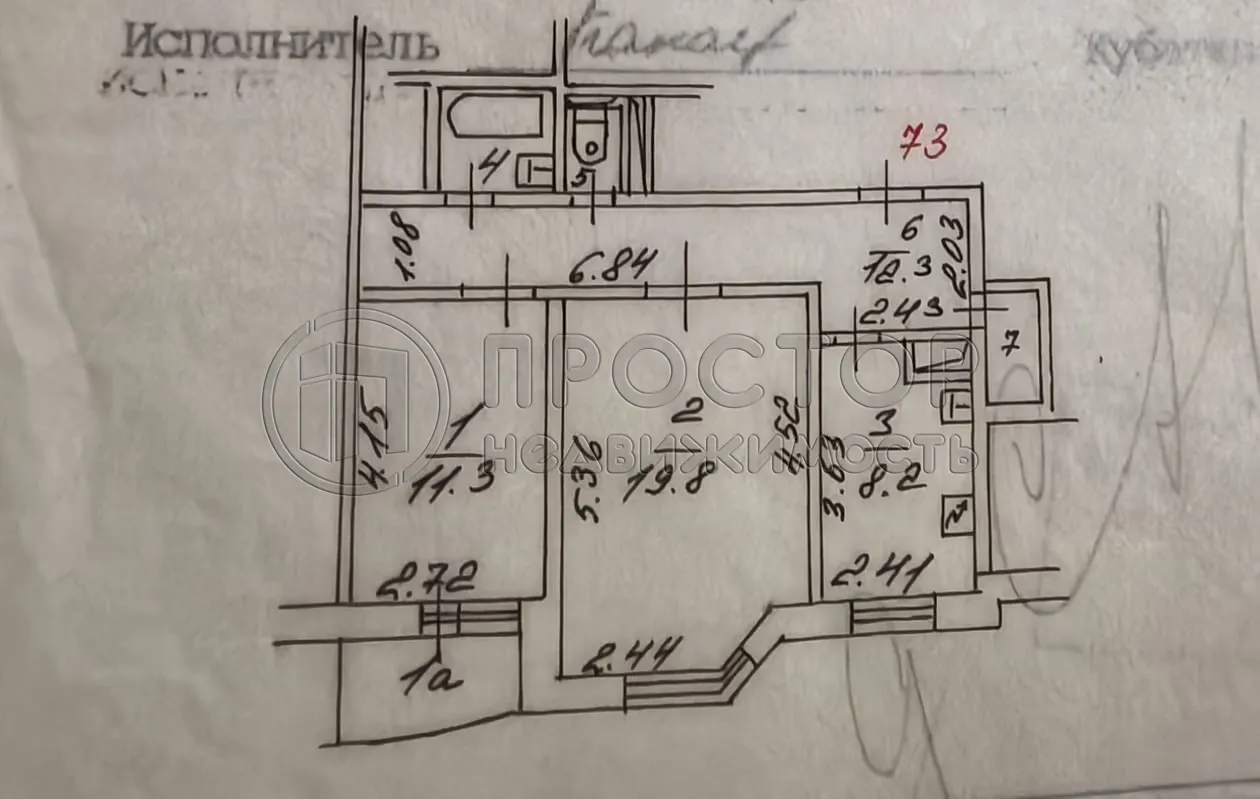 Исполнитель
73
4
5
1.08
6.84
6
12.3
2.03
2.43
7
ПРОСТОР
недвижимость
1
11.3
4.15
2.72
2
19.8
5.36
4.52
2.44
3
8.2
3.63
2.41
1а